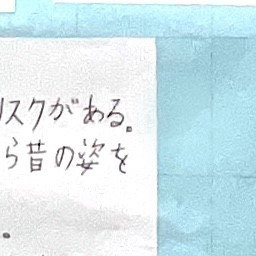 リスクがある。
ら昔の姿を
。